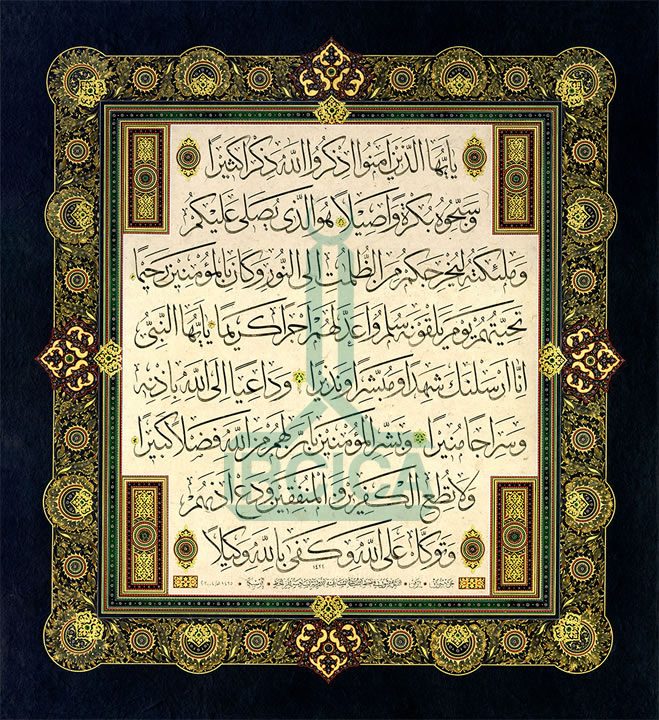 يا أيها الذين آمنوا اذكروا الله ذكرا كثيرا
وسبحوه بكرة وأصيلا هو الذي يصلي عليكم
وملئكته ليخرجكم من الظلمت إلى النور وكان بالمؤمنين رحيما
تحيتهم يوم يلقونه سلم وأعد لهم أجرا كريما يا أيها النبي
إنا أرسلنك شهدا ومبشرا ونذيرا وداعيا إلى الله بإذنه
وسراجا منيرا وبشر المؤمنين بأن لهم من الله فضلا كبيرا
ولا تطع الكفرين والمنفقين ودع أذىهم
وتوكل على الله وكفى بالله وكيلا
IRCICA